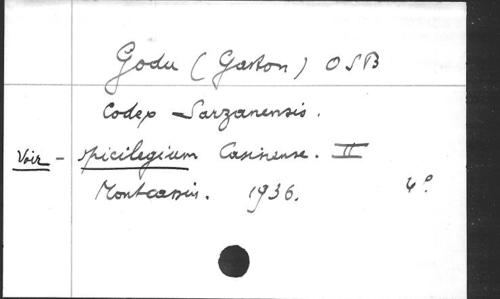 Godu (Gaston) OSB
Codex Sarzanensis.
Voir - spicilegium Casinense. II
Montcassin. 1936. 4°